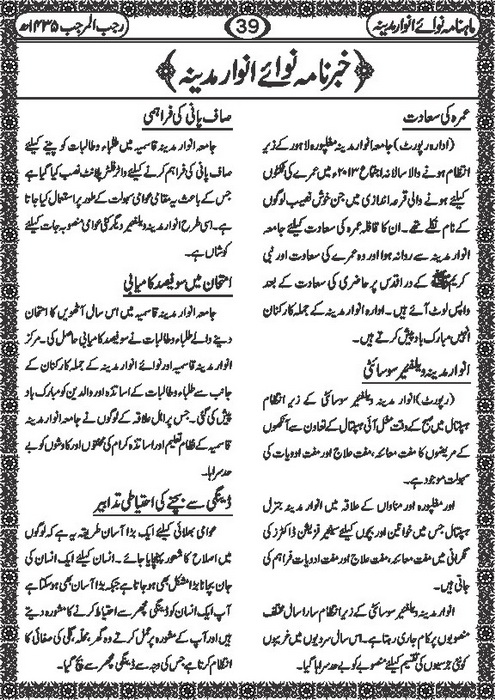 ماہنامہ نوائے انوار مدینہ
39
رجب المرجب ۱۴۳۵ھ
خبرنامہ نوائے انوار مدینہ
عمرہ کی سعادت
(ادارہ رپورٹ) جامعہ انوار مدینہ مغلپورہ لاہور کے زیر
انتظام ہونے والا سالانہ اجتماع ۲۰۱۳ء میں عمرے کی ٹکٹوں
کیلئے ہونے والی قرعہ اندازی میں جن خوش نصیب لوگوں
کے نام نکلے تھے۔ ان کا قافلہ عمرہ کی سعادت کیلئے جامعہ
انوار مدینہ سے روانہ ہوا اور وہ عمرے کی سعادت اور نبی
کریم ﷺ کے در اقدس پر حاضری کی سعادت کے بعد
واپس لوٹ آئے ہیں۔ ادارہ انوار مدینہ کے جملہ کارکنان
انہیں مبارک باد پیش کرتے ہیں۔
انوار مدینہ ویلفیئر سوسائٹی
(رپورٹ) انوار مدینہ ویلفیئر سوسائٹی کے زیر انتظام
ہسپتال میں صبح کے وقت مغل آئی ہسپتال کے تعاون سے آنکھوں
کے مریضوں کا مفت معائنہ، مفت علاج اور مفت ادویات کی
سہولت موجود ہے۔
اور مغلپورہ اور مناواں کے علاقہ میں انوار مدینہ جنرل
ہسپتال جس میں خواتین اور بچوں کیلئے سینئر فزیشن ڈاکٹرز کی
نگرانی میں مفت معائنہ، مفت علاج اور مفت ادویات فراہم کی
جاتی ہیں۔
انوار مدینہ ویلفیئر سوسائٹی کے زیر انتظام سارا سال مختلف
منصوبوں پر کام جاری رہتا ہے۔ اس سال سردیوں میں غریبوں
کو گئی جرسیوں کی تقسیم کیلئے منصوبے کو بے حد سراہا گیا۔
صاف پانی کی فراہمی
جامعہ انوار مدینہ قاسمیہ میں طلباء و طالبات کو پینے کیلئے
صاف پانی کی فراہم کرنے کیلئے واٹر فلٹر پلانٹ نصب کیا گیا ہے
جس کے باعث یہ مقامی عوامی سہولت کے طور پر استعمال کیا جاتا
ہے۔ اسی طرح انوار مدینہ ویلفیئر دیگر کئی عوامی منصوبہ جات کیلئے
کوشاں ہے۔
امتحان میں سو فیصد کامیابی
جامعہ انوار مدینہ قاسمیہ میں اس سال آٹھویں کا امتحان
دینے والے طلباء و طالبات نے سو فیصد کامیابی حاصل کی۔ مرکز
انوار مدینہ قاسمیہ اور نوائے انوار مدینہ کے جملہ کارکنان کے
جانب سے طلباء و طالبات کے اساتذہ اور والدین کو مبارک باد
پیش کی گئی۔ جس پر اہل علاقہ کے لوگوں نے جامعہ انوار مدینہ
قاسمیہ کے نظام تعلیم اور اساتذہ کرام کی محنتوں اور کاوشوں کو بے
حد سراہا۔
ڈینگی سے بچنے کی احتیاطی تدابیر
عوامی بھلائی کیلئے ایک بڑا آسان طریقہ یہ ہے کہ لوگوں
میں اصلاح کا شعور پہنچایا جائے۔ انسان کیلئے ایک انسان کی
جان بچانا بڑا مشکل بھی ہو جاتا ہے جبکہ بڑا آسان بھی ہو سکتا ہے
آپ ایک انسان کو ڈینگی مچھر سے احتیاط کرنے کا مشورہ دیتے
ہیں اور آپ کے مشورہ پر عمل کرتے وہ گھر، محلہ، گلی کی صفائی کا
انتظام کرتا ہے جس کی وجہ سے ڈینگی مچھر سے بچ گیا۔